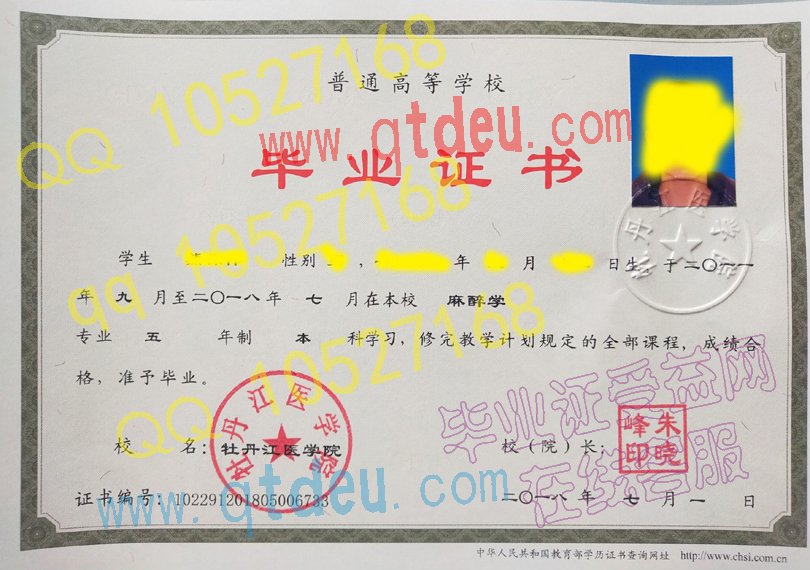 普通高等学校
QQ 10527168
www.qtdeu.com
毕业证书
学生 性别 , 年 月 日生,于二〇一一
年 九 月至二〇一八年 七 月在本校 麻醉学
qq 10527168
专业 五 年制 本 科学习,修完教学计划规定的全部课程,成绩合
格,准予毕业。
QQ 10527168
毕业证受益网
在线客服
牡丹江医学院
校 名:牡丹江医学院
校(院)长:
朱晓峰印
证书编号:102291201805006733
二〇一八年 七 月 一 日
www.qtdeu.com
中华人民共和国教育部学历证书查询网址 http://www.chsi.com.cn